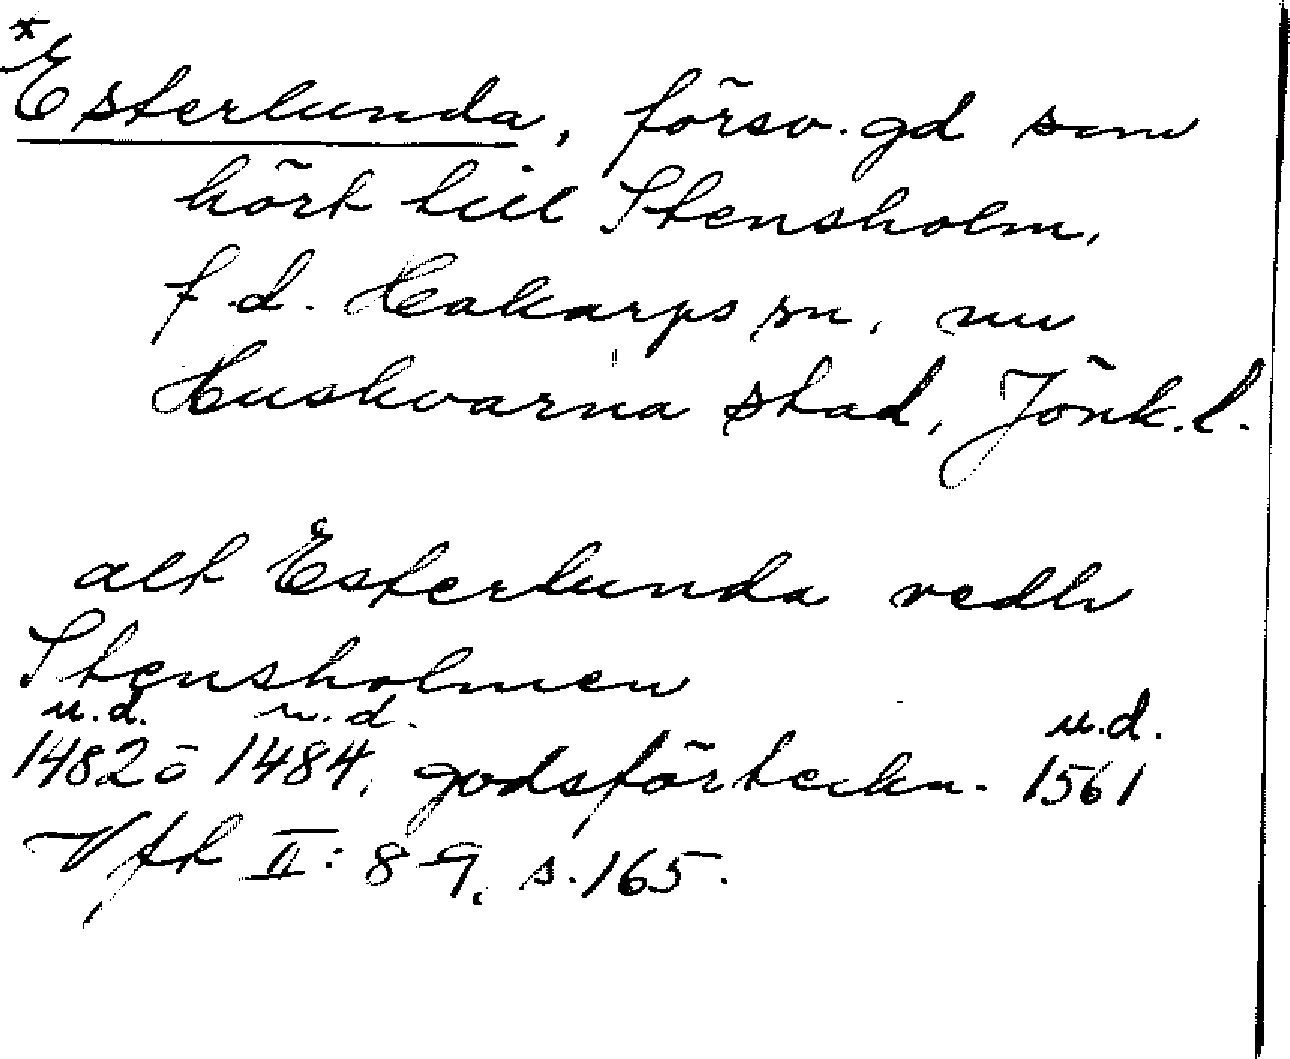 *Esterlunda, försv. gd som
hört till Stensholm,
f.d. Hakarps sn, nu
Huskvarna stad, Jönk. l.
alt Esterlunda vedh
Stensholmen
u.d. u.d. u.d.
1482 o 1484, godsförteckn. 1561
Vfk II: 8-9, s. 165.